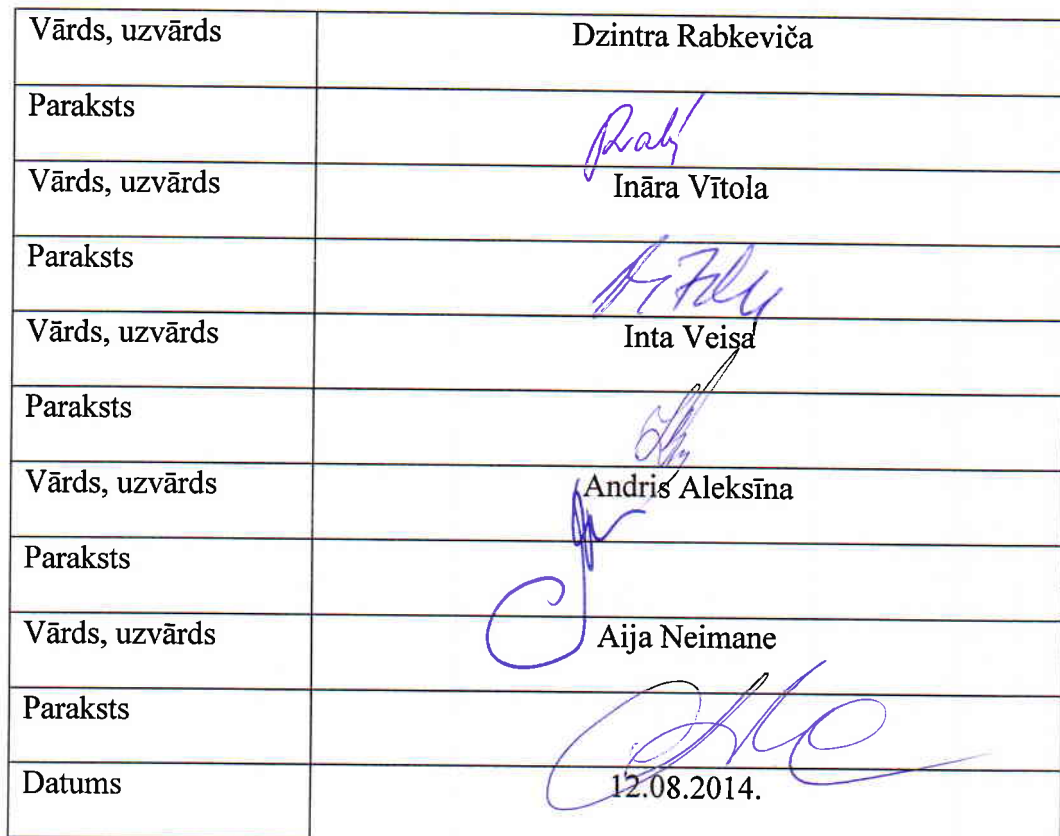 Vārds, uzvārds Dzintra Rabkeviča
Paraksts
Vārds, uzvārds Ināra Vītola
Paraksts
Vārds, uzvārds Inta Veisa
Paraksts
Vārds, uzvārds Andris Aleksīna
Paraksts
Vārds, uzvārds Aija Neimane
Paraksts
Datums 12.08.2014.